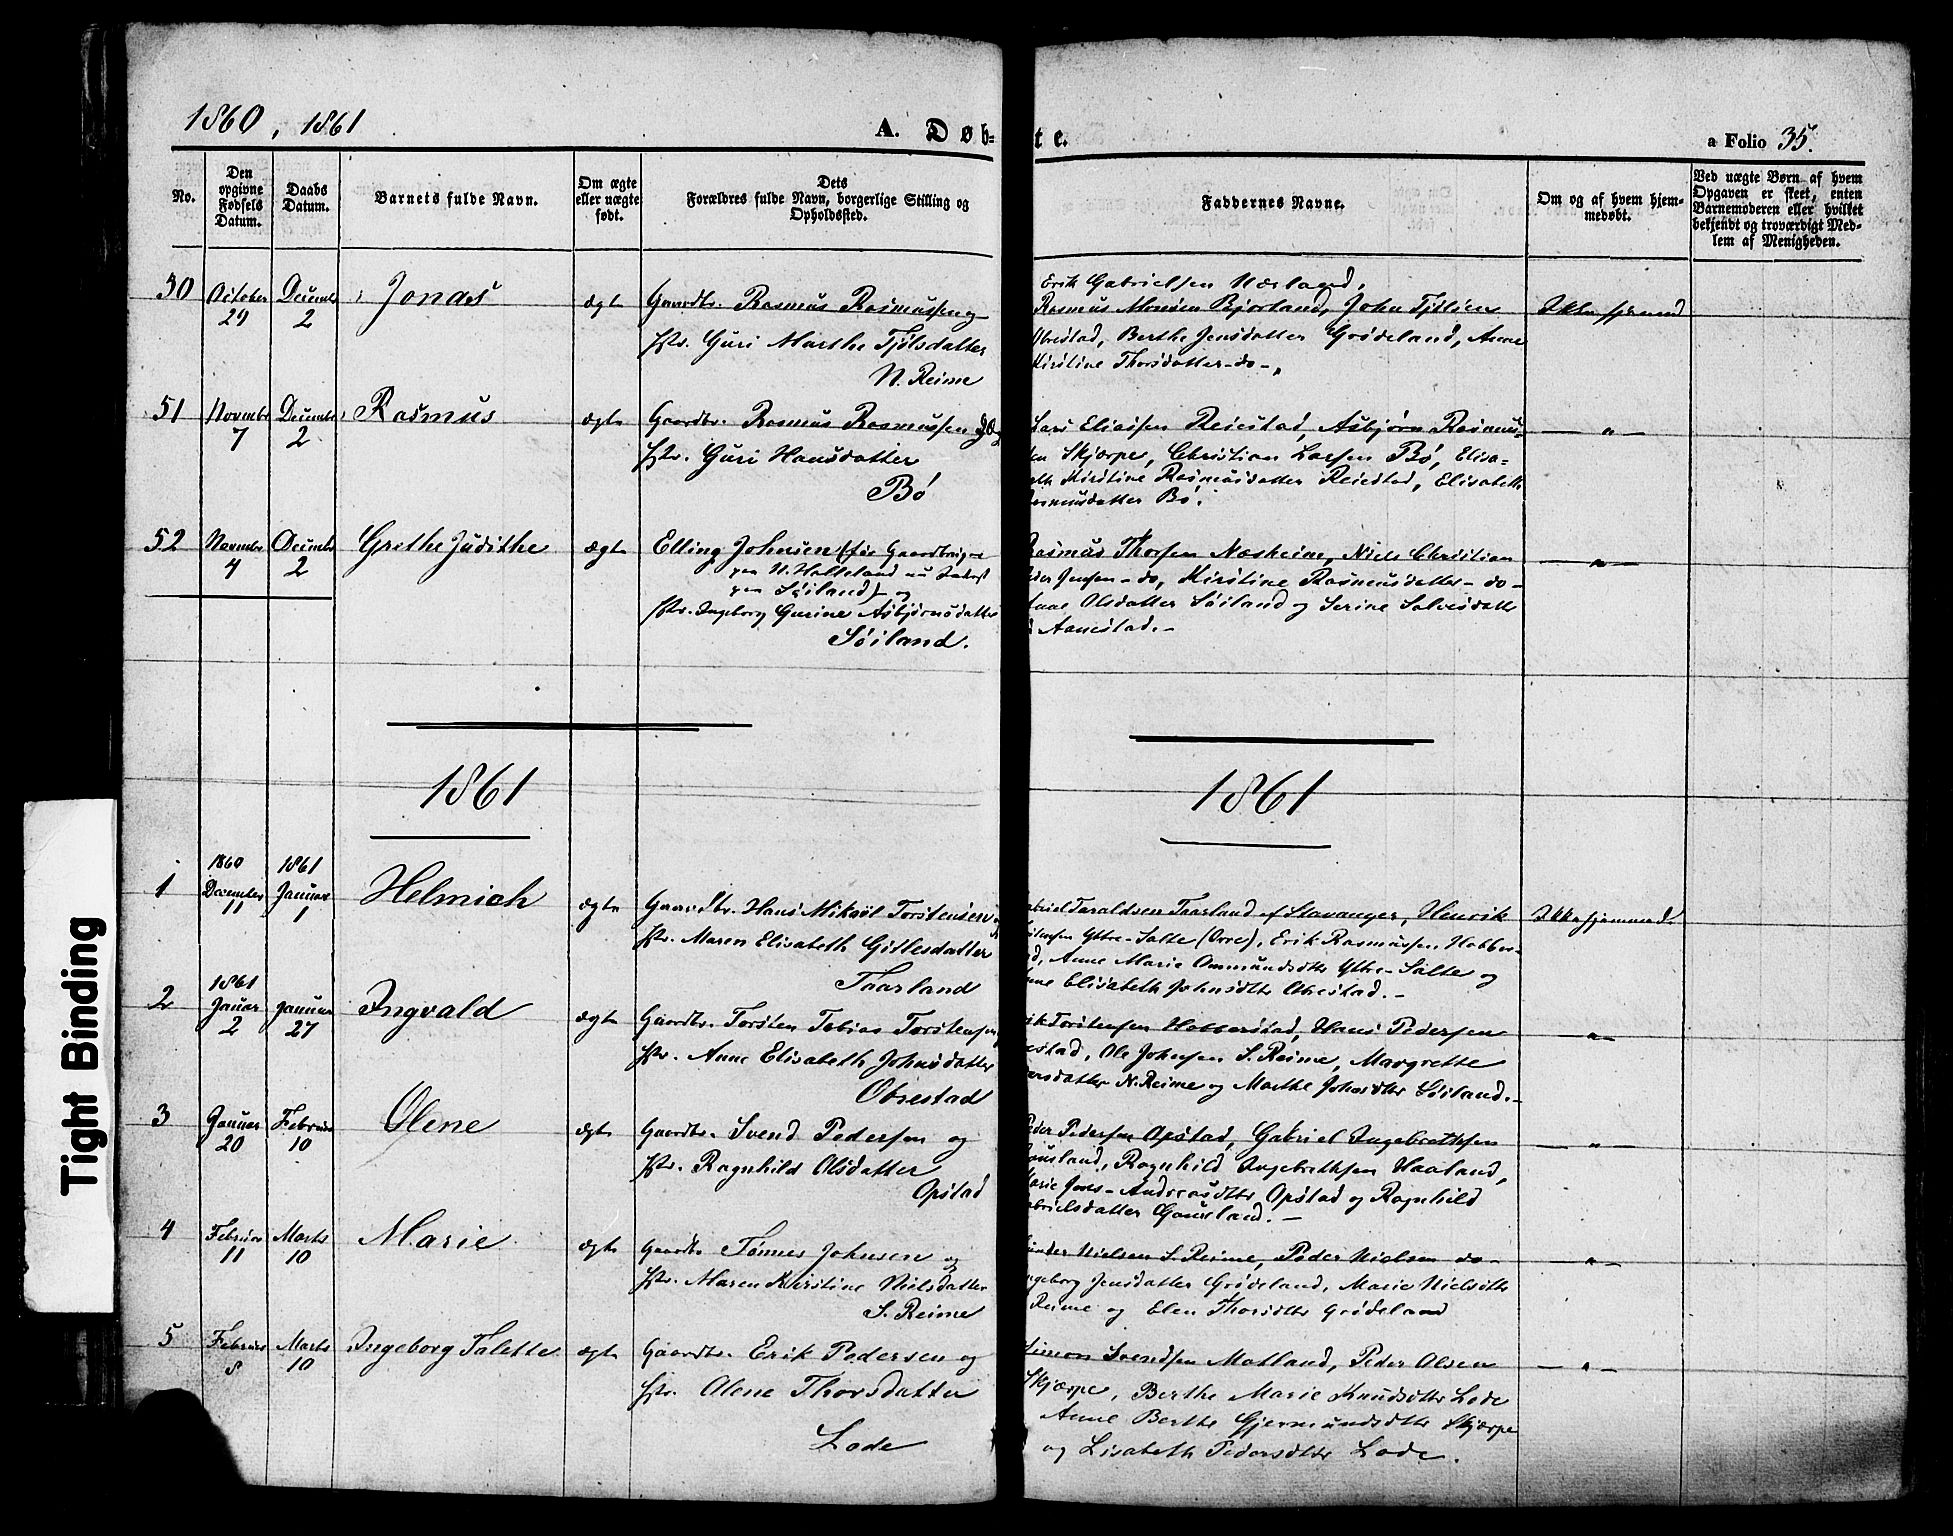 1860, 1861
A. Døb-
te.
a Folio 35.
No.
Den opgivne Fødsels Datum.
Daabs Datum.
Barnets fulde Navn.
Om ægte eller uægte født.
Dets Forældres fulde Navn, borgerlige Stilling og Opholdssted.
Faddernes Navne.
Om og af hvem hjemmedøbt.
Ved uægte Børn af hvem Opgaven er skeet, enten Barnemoderen eller hvilket bekjendt og troværdigt Medlem af Menigheden.
50 October 29 Decembr 2 Jonas ægte Gaardbr. Rasmus Rasmussen og
Hstr. Guri Marthe Tjølsdatter
N. Reime
Erik Gabrielsen Nærland,
Rasmus Monsen Bjorland, John Tjølsen
Obrestad, Berthe Jensdatter Grødeland, Anne
Kirstine Thorsdatter -do-,
Ikke hjemmed
51 Novembr 7 Decembr 2 Rasmus ægte Gaardbr. Rasmus Rasmussen og
Hstr. Guri Hansdatter
Bø
Lars Eliassen Reiestad, Asbjørn Rasmus-
sen Skjærpe, Christian Larsen Bø, Elisa-
beth Kirstine Rasmusdatter Reiestad, Elisabeth
Rasmusdatter Bø.
— " —
52 Novembr 4 Decembr 2 Grethe Judithe ægte Elling Johnsen (før Gaardbrug-
paa N. Haelland nu Inderst
paa Søiland) og
Hstr. Ingeborg Gurine Asbjørnsdatter
Søiland.
Rasmus Thorsen Næsheim, Niels Christian
Jensen -do, Kirstine Rasmusdatter -do-
Olsdatter Søiland og Serine Salvesdatt
Aanestad.-
— " —
1861
1861
1 1860 December 11 1861 Januar 1 Helmich ægte Gaardbr. Hans Mikal Torstensen
Hstr. Maren Elisabeth Gitlesdatter
Taarland
Gabriel Taraldsen Taarland af Stavanger, Henrik
Ytre-Salte (Orre), Erik Rasmussen Hobber-
stad, Anne Marie Ommundsdtter Ytre-Salte og
Anne Elisabeth Johnsdtter Obrestad.-
Ikke hjemmed.
2 1861 Januar 2 Januar 27 Ingvald ægte Gaardbr. Torsten Tobias Torstensen
Hstr. Anne Elisabeth Johnsdatter
Obrestad
Erik Torstensen Hobberstad, Hans Pedersen
Obrestad, Ole Johnsen S. Reime, Margrethe
Larsdatter N. Reime og Marthe Johnsdtter Søiland.-
— " —
3 Januar 20 Februar 10 Olene ægte Gaardbr. Svend Pedersen og
Hstr. Ragnhild Olsdatter
Opstad
Peder Pedersen Opstad, Gabriel Ingebrethsen
Gausland, Ragnhild Ingebrethsen Haaland,
Marie Andreasdtter Opstad og Ragnhild
Gabrielsdatter Gausland.-
— " —
4 Februar 11 Marts 10 Marie ægte Gaardbr. Tønnes Johnsen og
Hstr. Maren Kirstine Nielsdatter
S. Reime
Nielsen S. Reime, Peder Nielsen do-
Ingeborg Jensdatter Grødeland, Marie Nielsdtter
Reime og Elen Thorsdtter Grødeland
— " —
5 Februar 8 Marts 10 Ingeborg Talette ægte Gaardbr. Erik Pedersen og
Hstr. Olene Thorsdatter
Lode
Simon Svendsen Motland, Peder Olsen
Skjærpe, Berthe Marie Knudsdtter Lode
Anne Berthe Gjermundsdtter Skjærpe
og Lisabeth Pedersdtter Lode.
— " —
Tight Binding